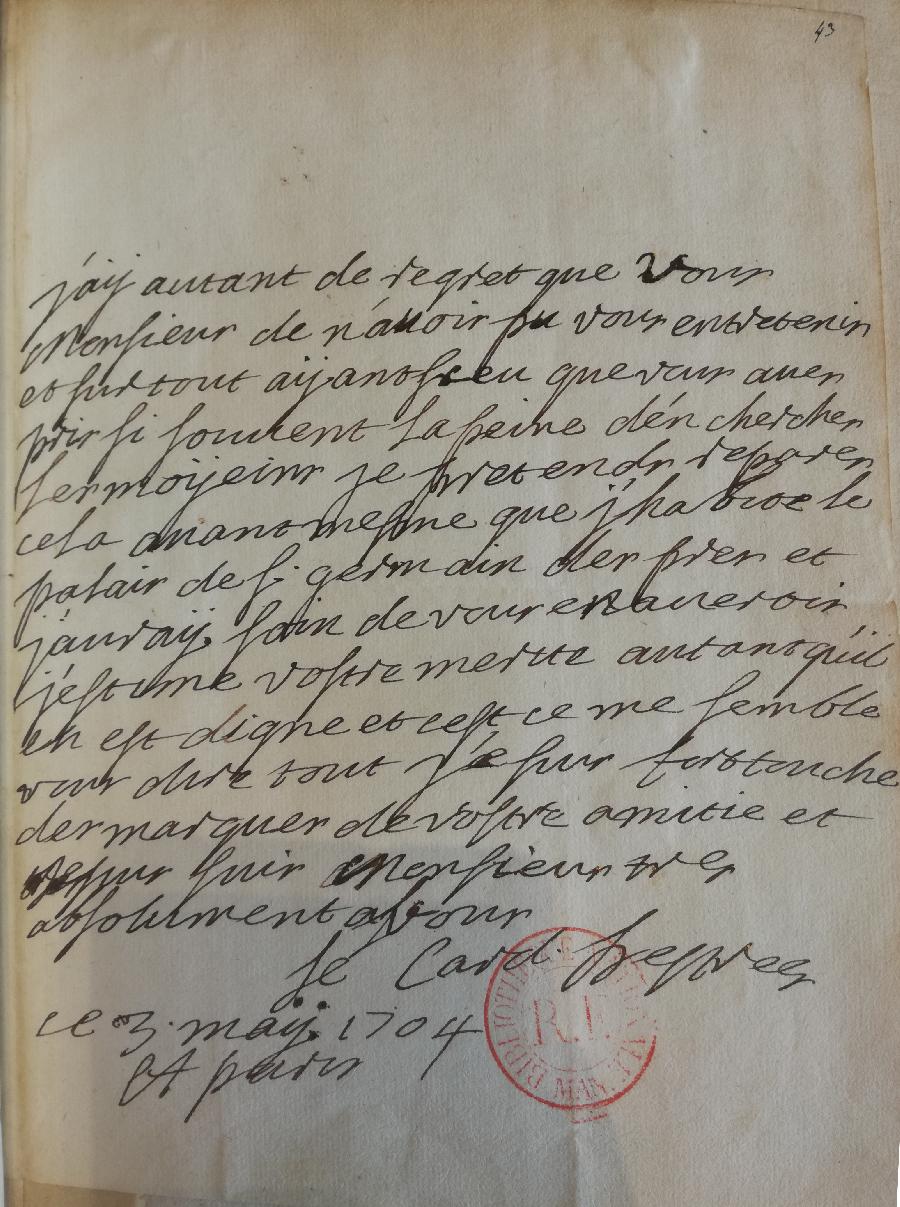 43
j'aÿ autant de regret que vous
Monsieur de n'avoir pu vous entretenir
et sur tout aÿant sceu que vous aues
pris si souuent la peine d'en chercher
les moÿeins je pretends reparer
cela auant mesme que j'habite le
palais de S. germain des pres et
j'auraÿ soin de vous en auertir
j'estime vostre merite autant qu'il
en est digne et cest ce me semble
vous dire tout je suis fort touche
des marques de vostre amitie et
suis Monsieur tres
absolument a vous
le Card. d'estrees
ce 3. maÿ 1704
A paris
BIBLIOTHEQUE NATIONALE
R.F.
MAN.